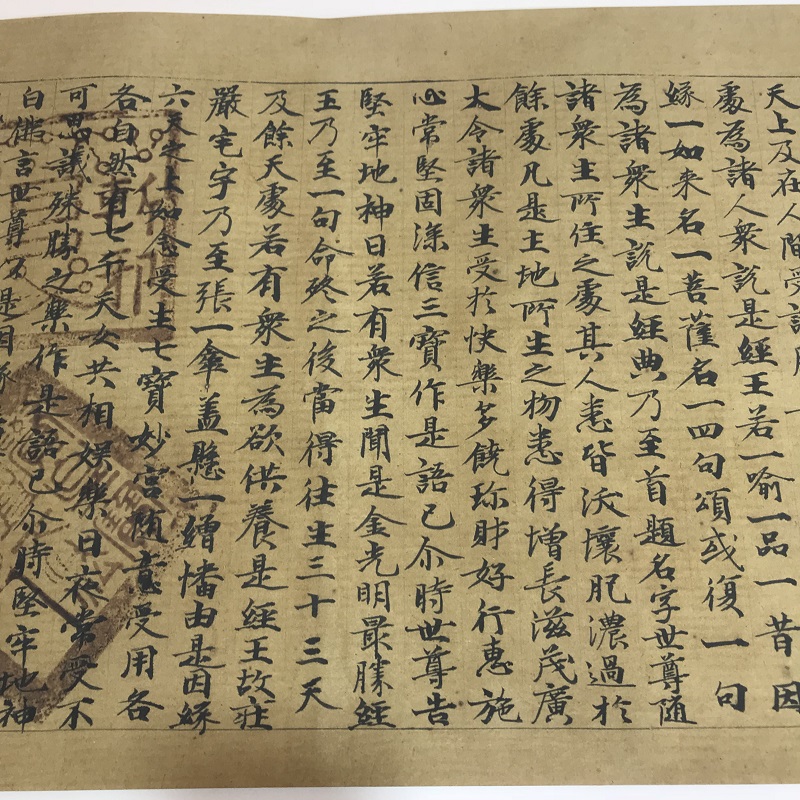 天上及在人間受
處為諸人衆說是經王若一喻一品一昔因
緣一如来名一菩薩名一四句頌或復一句
為諸衆生說是經典乃至首題名字世尊随
諸衆生所住之處其人悉皆沃壤肥濃過於
餘處凡是土地所生之物悉得增長滋茂廣
大令諸衆生受於快樂多饒珎財好行惠施
心常堅固深信三寶作是語已尒時世尊告
堅牢地神曰若有衆生聞是金光明最勝經
王乃至一句命終之後當得往生三十三天
及餘天處若有衆生為欲供養是經王故莊
嚴宅宇乃至張一傘盖懸一繒幡由是因緣
六天之上如念受生七寶妙宮随意受用各
各自然有七千天女共相娛樂日夜常受不
可思議殊勝之樂作是語已尒時堅牢地神
白佛言世尊以是因緣